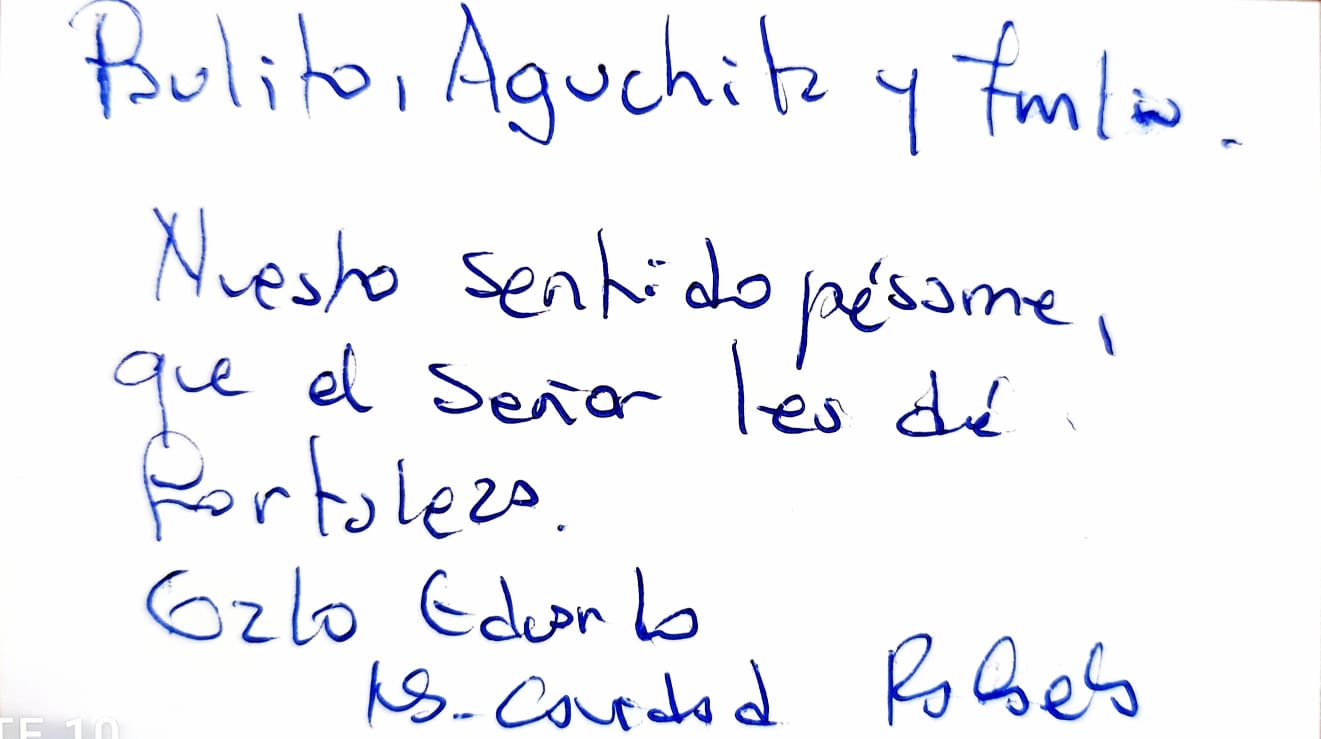 Bulito, Aguchita y fmlia.
Nuestro sentido pésame,
que el Señor les dé
Fortaleza.
Gzlo Eduardo
Ma. Caridad